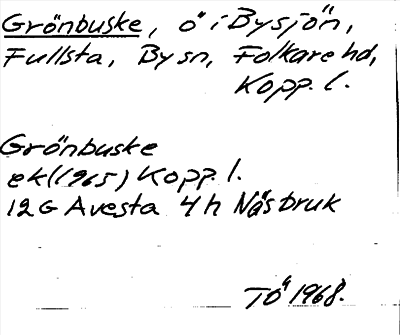 Grönbuske, ö i Bysjön,
Fullsta, By sn, Folkare hd,
Kopp. l.
Grönbuske
ek (1965) Kopp. l.
12G Avesta 4h Näsbruk
TÖ 1968.